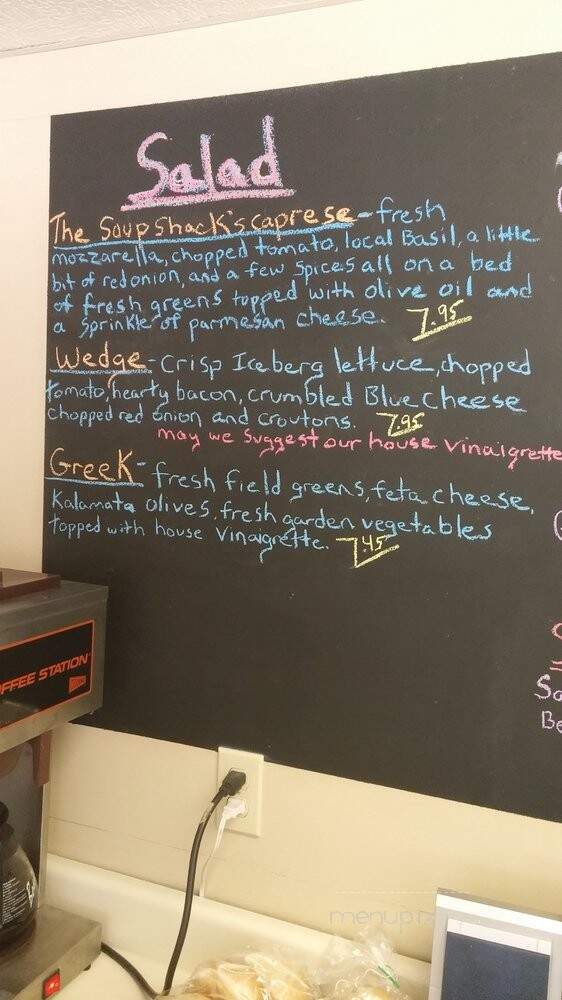 Salad
The Soup Shack's caprese - fresh
mozzarella, chopped tomato, local Basil, a little
bit of red onion, and a few spices all on a bed
of fresh greens topped with olive oil and
a sprinkle of parmesan cheese. 7.95
Wedge - Crisp Iceberg lettuce, chopped
tomato, hearty bacon, crumbled Blue Cheese
chopped red onion and croutons. 7.95
may we suggest our house vinaigrette
Greek - fresh field greens, feta cheese,
Kalamata olives, fresh garden vegetables
topped with house vinaigrette. 7.45
FFEE STATION
So
Be
menup